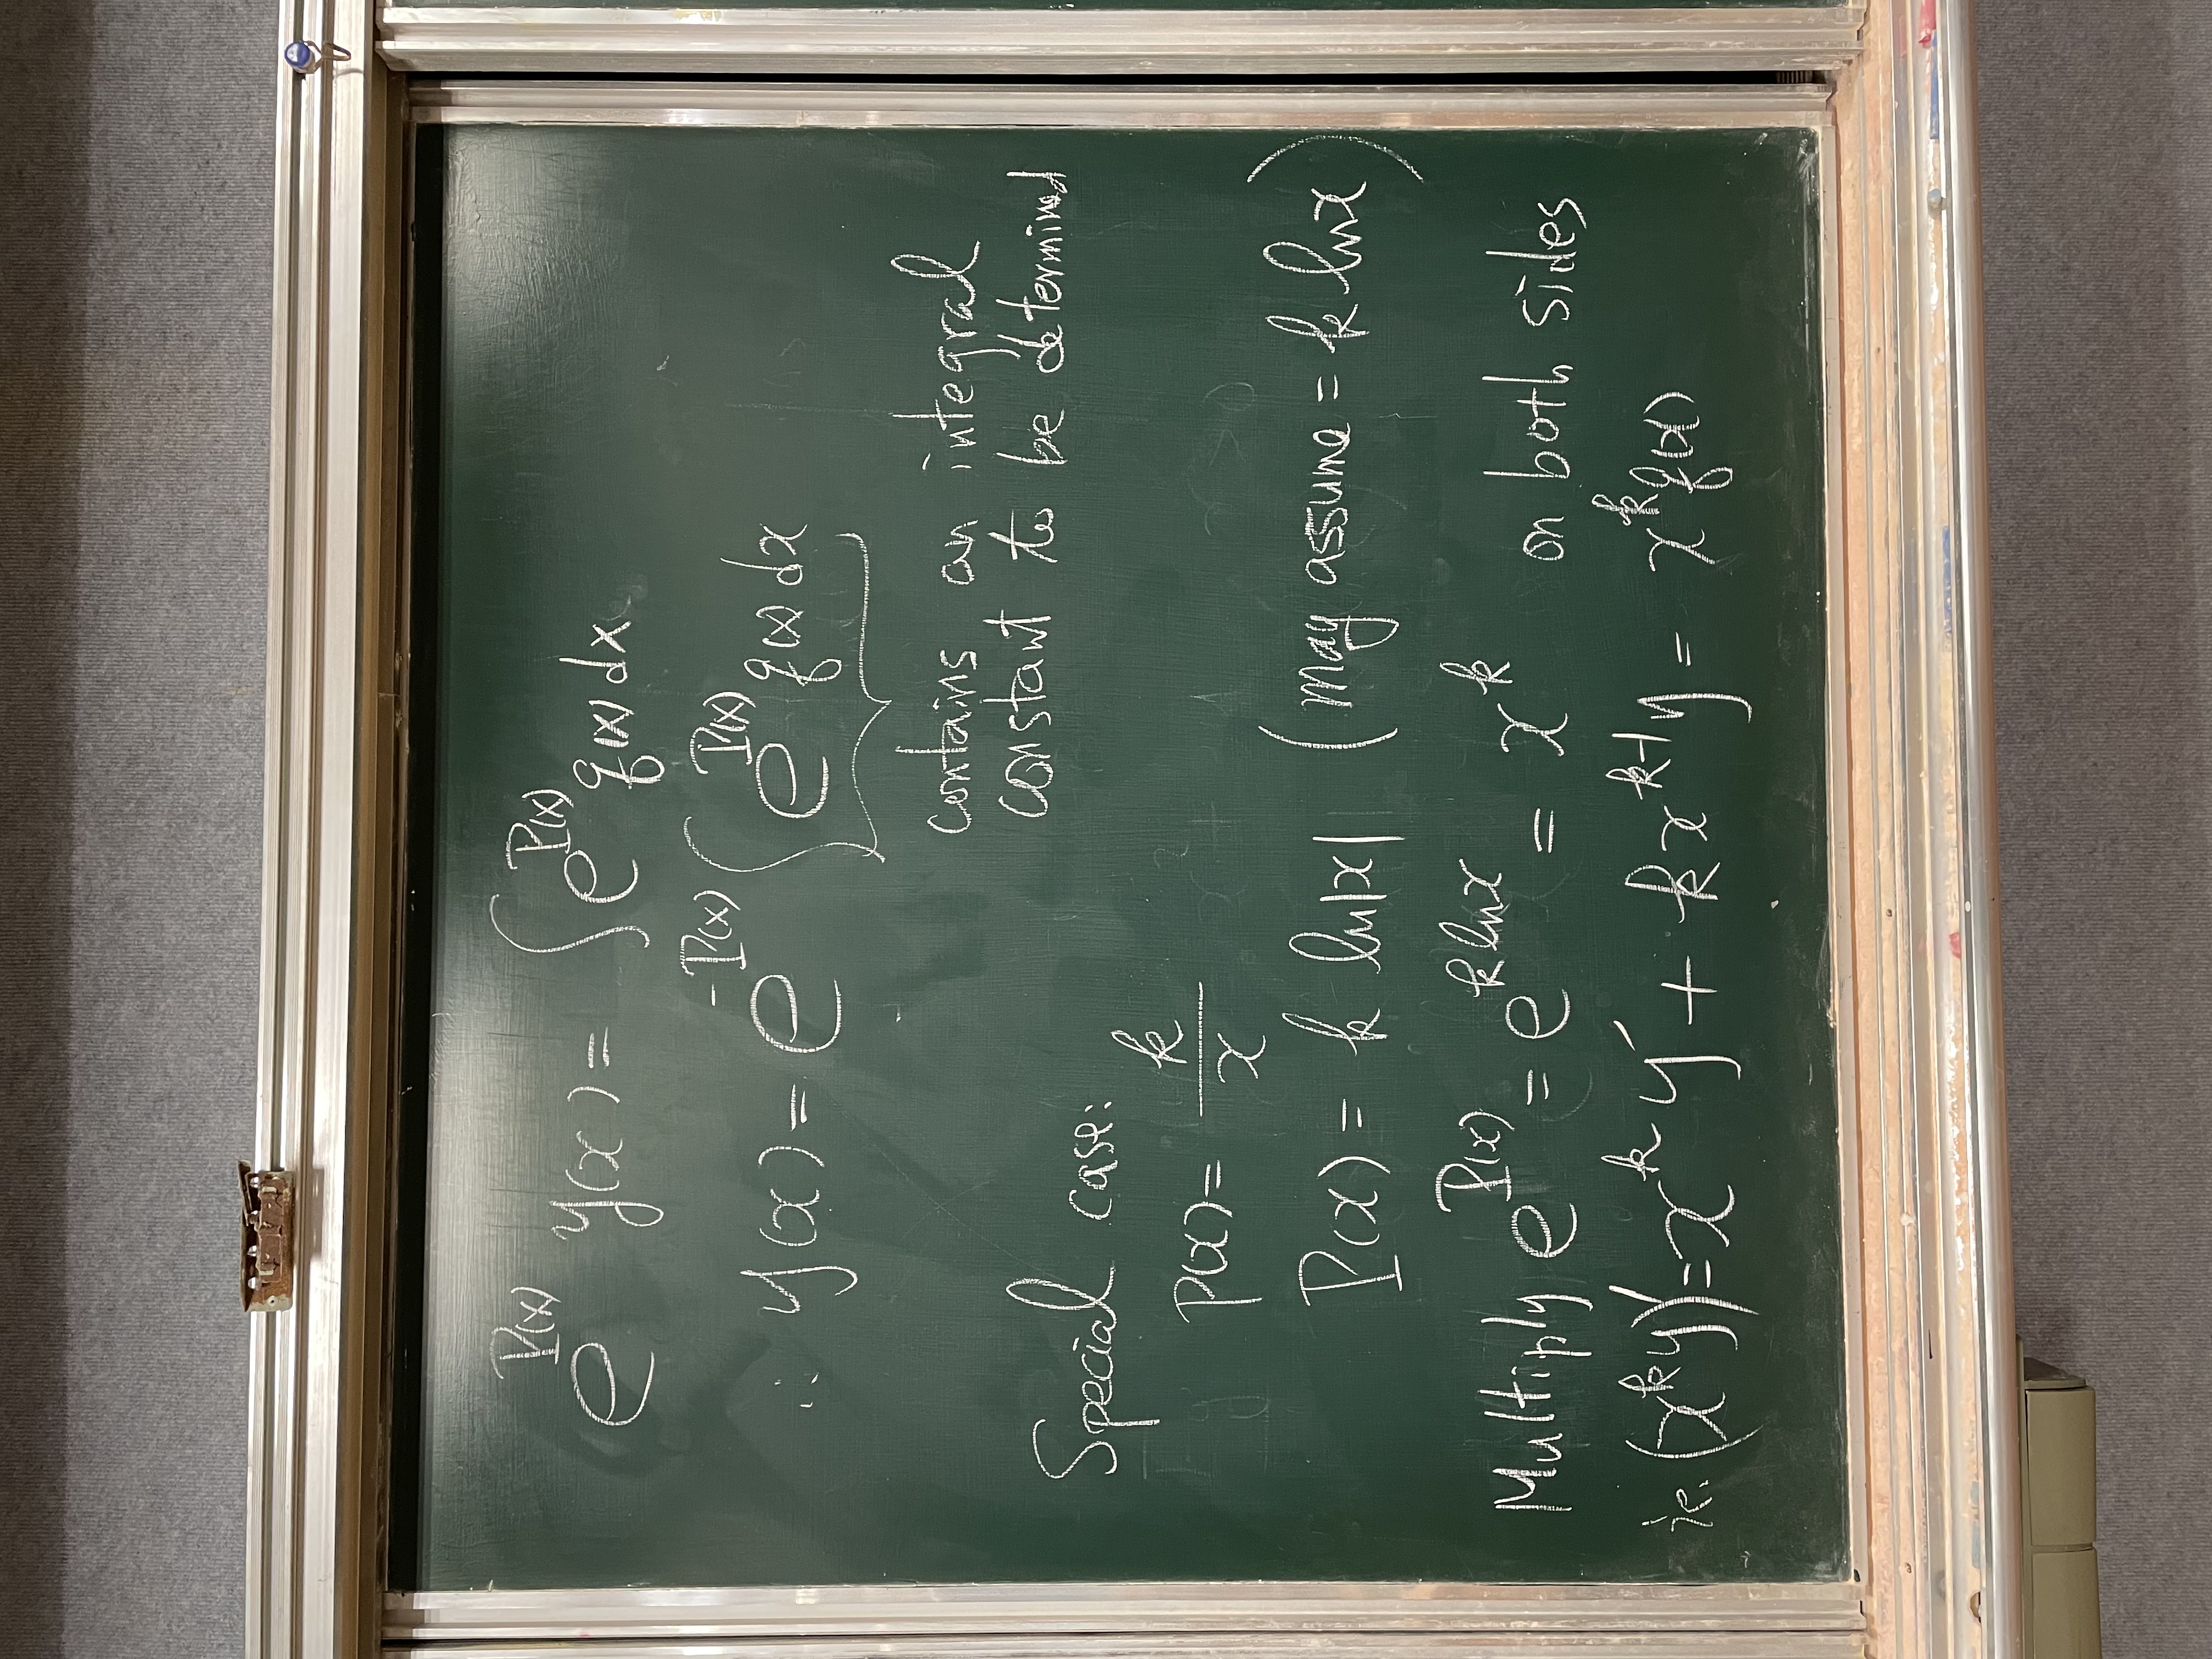 e^{P(x)} y(x) = ∫ e^{P(x)} q(x) dx
∴ y(x) = e^{-P(x)} ∫ e^{P(x)} q(x) dx
contains an integral
constant to be determined
Special case:
p(x) = k/x
P(x) = k ln|x| (may assume = k lnx)
Multiply e^{P(x)} = e^{k lnx} = x^k on both sides
ie. (x^k y)' = x^k y' + k x^{k+1} y = x^k q(x)